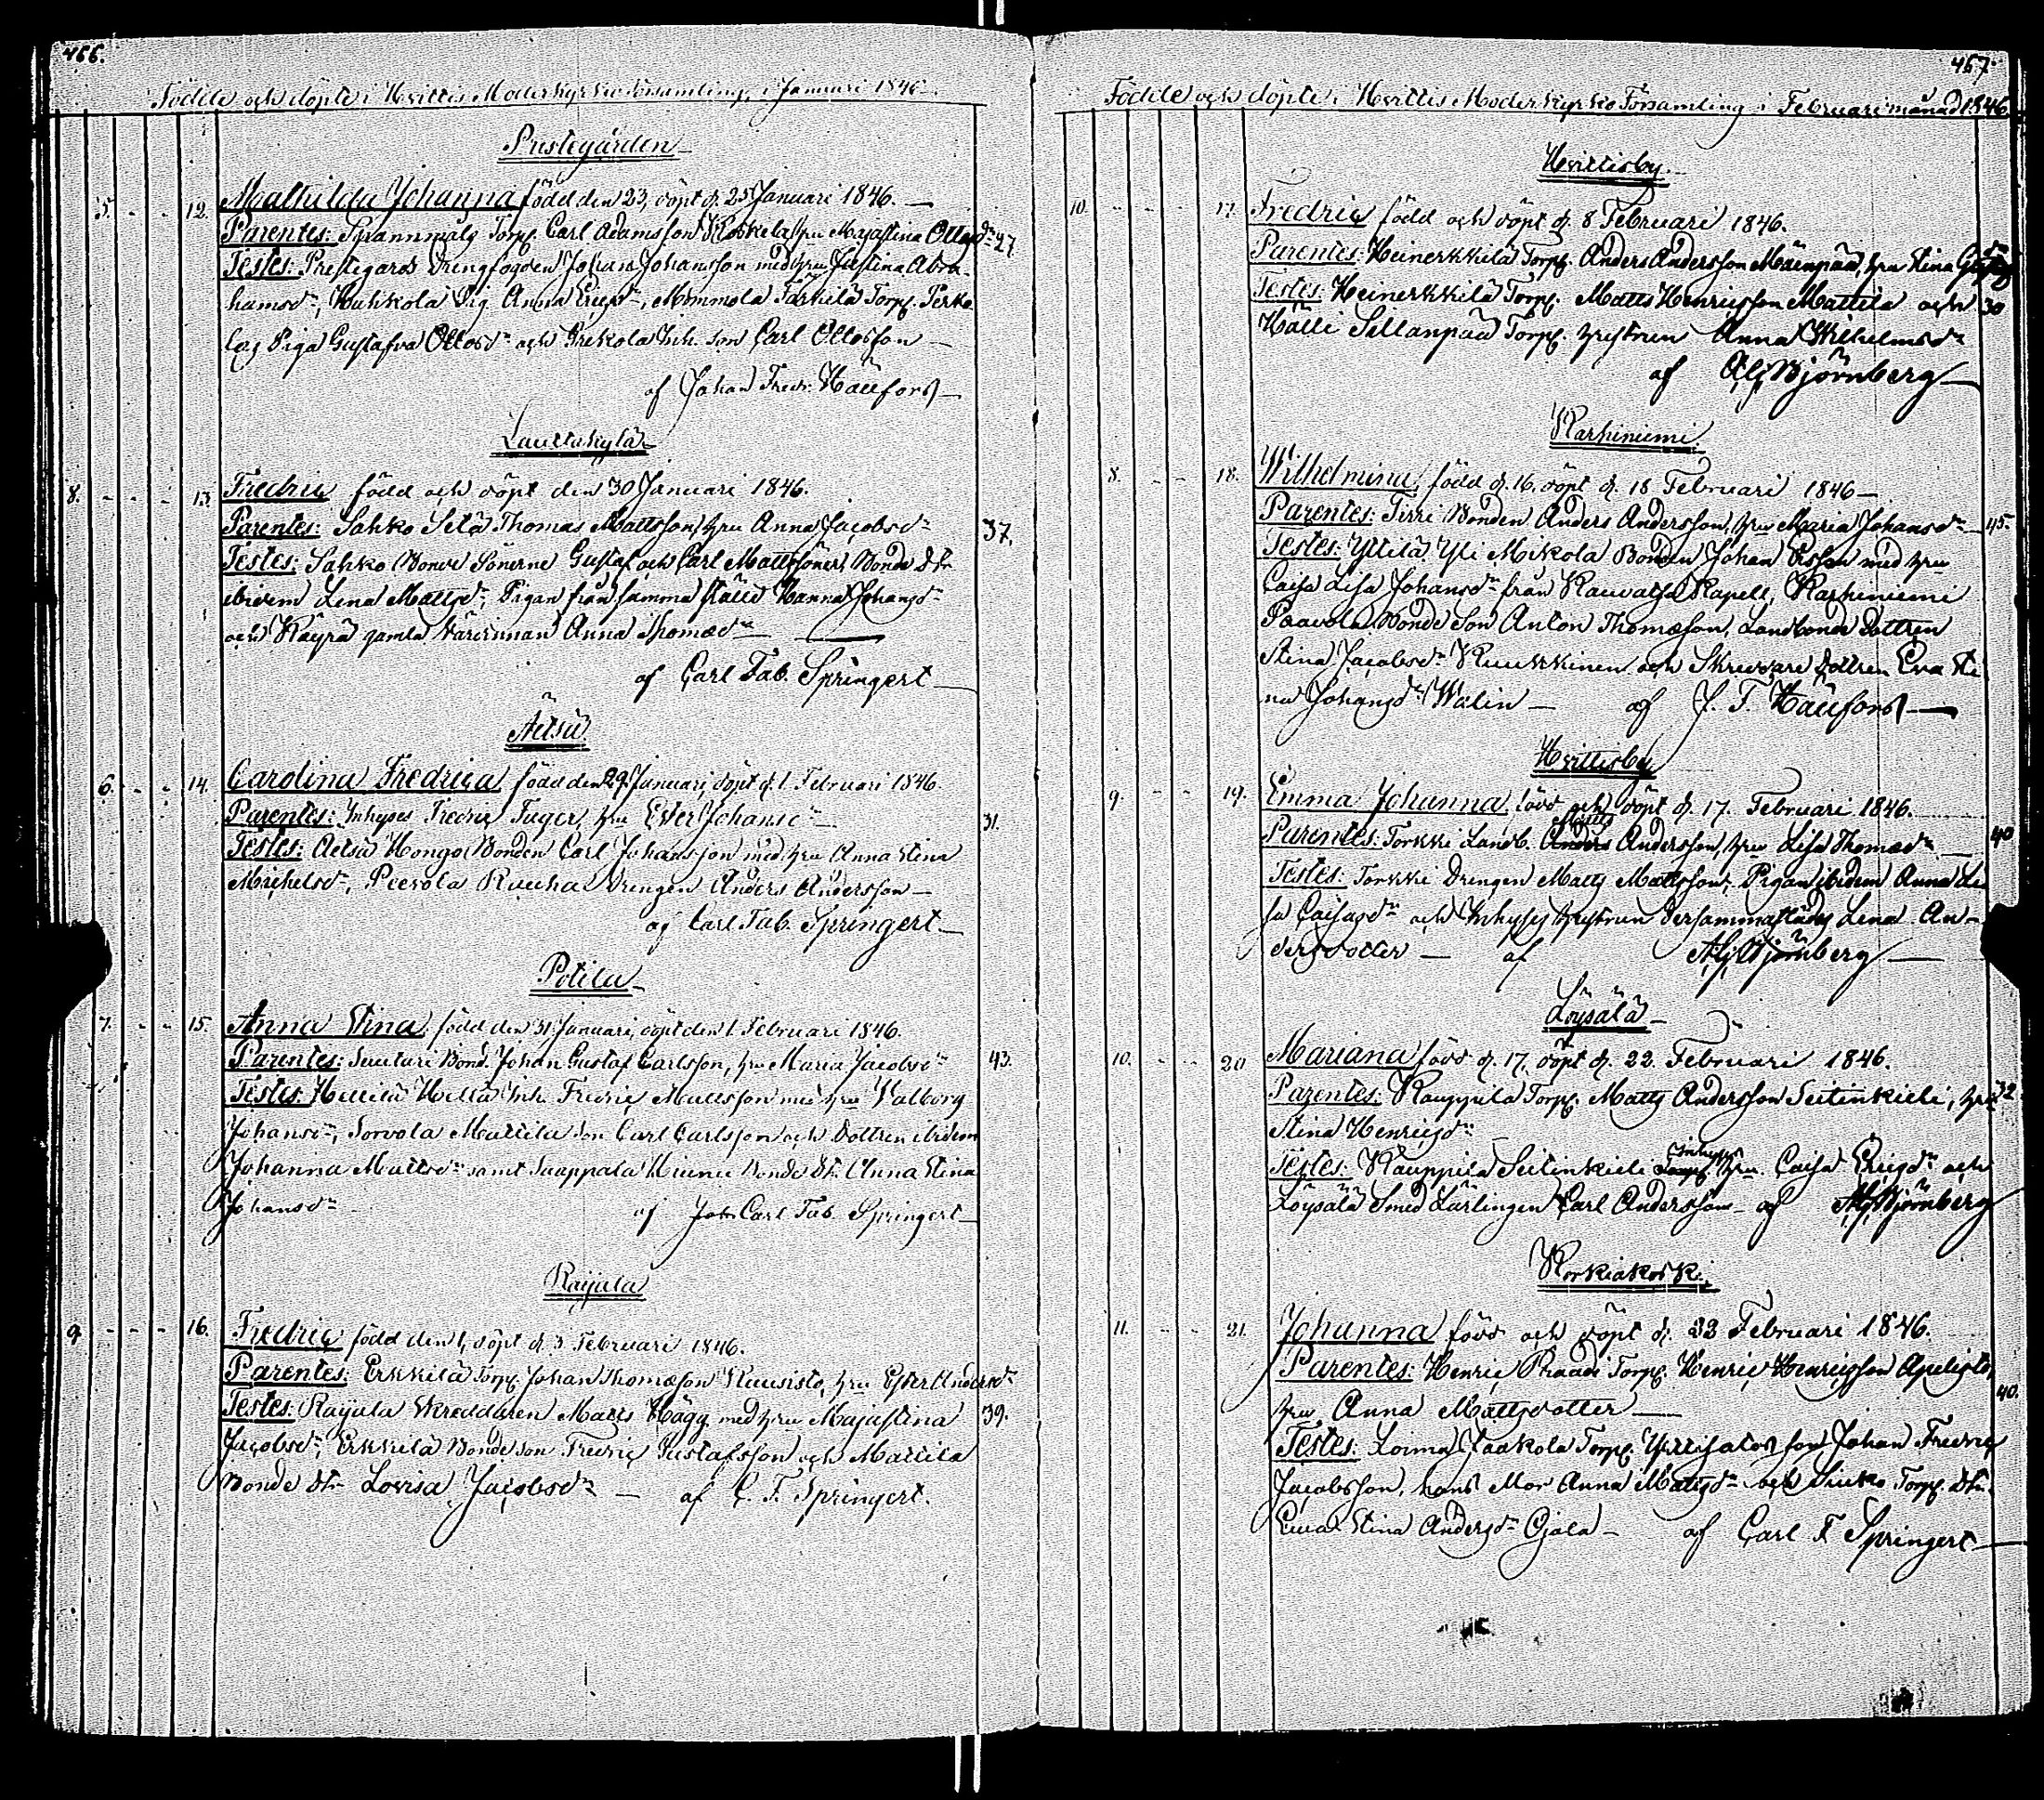 466.
Födde och döpte i Hvittis Moderkyrko församling, i Januari 1846.
Prestegården
5. - - 12. Mathilda Johanna född den 23, döpt d. 25 Januari 1846.
Parentes: Torp. Carl Adamsson Koskela, hru Majastina Ottosdr 27.
Testes: Prestegårds Drengfogden Johan Johansson med hru Justina Abra-
hamsdr, Huhkola Pig. Anna Ericsdr, Mommola Torp.
Piga Gustafva Ottosdr och Inh. son Carl Ottosson
af Johan Fredr. Hällfors
Lauttakylä
8. - - - 13. Fredric född och döpt den 30 Januari 1846.
Parentes: Sahko Thomas Mattsson, hru Anna Jacobsdr 37.
Testes: Sahko Bonde Sönerne Gustaf och Carl Mattssöner, Bonde dtr
ibidem Lena Mattsdr, Pigan från samma ställe Hanna Johansdr
och Käyrä gamla Värdinnan Anna Thomædr
af Carl Fab. Springert
Aetsä
6. - - 14. Carolina Fredrica född den 29 Januari, döpt d. 1. Februari 1846.
Parentes: Inhyses Fredric Tuger, hru Ester Johansdr 31.
Testes: Aetsä Hongo Bonden Carl Johansson med hru Anna Stina
Michelsdr, Peevola Drengen Anders Andersson
af Carl Fab. Springert
Potila
7. - - 15. Anna Stina född den 31 Januari, döpt den 1. Februari 1846.
Parentes: Suutari Bond. Johan Gustaf Carlsson, hru Maria Jacobsdr 43.
Testes: Inh. Fredric Mattsson med hru Valborg
Johansdr, Sorvola Mattila son Carl Carlsson och dottren ibidem
Johanna Mattsdr samt Saappala Bonde dtr Anna Stina
Johansdr af Joh Carl Fab. Springert
Raijala
9. - - - 16. Fredric född den 1, döpt d. 3 Februari 1846.
Parentes: Erkkilä Torp. Johan Thomæson Kuusisto, hru Ester Andersdr
Testes: Raijala Skreddaren Matts Hägg med hru Majastina 39.
Jacobsdr, Erkkilä Bonde son Fredric Gustafsson och Mattila
Bonde dtr Lovisa Jacobsdr af C. F. Springert.
467.
Födde och döpte i Hvittis Moderkyrko Församling i Februari månad 1846.
Hvittisby
10. - - - 17. Fredric född och döpt d. 8 Februari 1846.
Parentes: Heinerkkilä Torp. Anders Andersson Mäenpää, hru Stina
Testes: Heinerkkilä Torp. Matts Henricsson Mattila och 30
Hälli Sillanpää Torp. hustrun Anna Wilhelmsdr
af Björnberg
Karhiniemi
8. - - 18. Wilhelmina född d. 16. döpt d. 18 Februari 1846
Parentes: Pirri Bonden Anders Andersson, hru Maria Johansdr 45.
Testes: Yttilä Yli Mikola Bonden Johan Ersson med hru
Caisa Lisa Johansdr från Kauvatsa Kapell, Karhiniemi
Paavola Bonde Son Anton Thomæson, Landbonde dottren
Stina Jacobsdr Kuukkinen och Skreddare dottren Eva Sti
na Johansdr Walin af J. F. Hällfors
Hvittisby
9. - - 19. Emma Johanna född och döpt d. 17. Februari 1846.
Matts
Parentes: Torkki Landb. Anders Andersson, hru Lisa Thomædr 40
Testes: Torkki Drengen Matts Mattsson, Pigan ibidem Anna Li
sa Caisasdr och Inhyses hustrun dersammastädes Lena An-
dersdotter af Björnberg
Löysälä
10. - - 20 Mariana född d. 17. döpt d. 22. Februari 1846.
Parentes: Kauppila Torp. Matts Andersson Seitinkieli, hru 32.
Stina Henricsdr
Inhyses
Testes: Kauppila Seitinkieli Torp. hru Caisa Ericsdr och
Löysälä Smed Lärlingen Carl Andersson af Björnberg
Korkiakoski
11. - - 21. Johanna född och döpt d. 22 Februari 1846.
Parentes: Henric Praadi Torp. Henric Henricsson
hru Anna Mattsdotter 40.
Testes: Loima Jaakola Torp. son Johan Fredric
Jacobsson, hans Mor Anna Mattsdr och Torp. dtr.
Eva Stina Andersdr Ojala af Carl F Springert